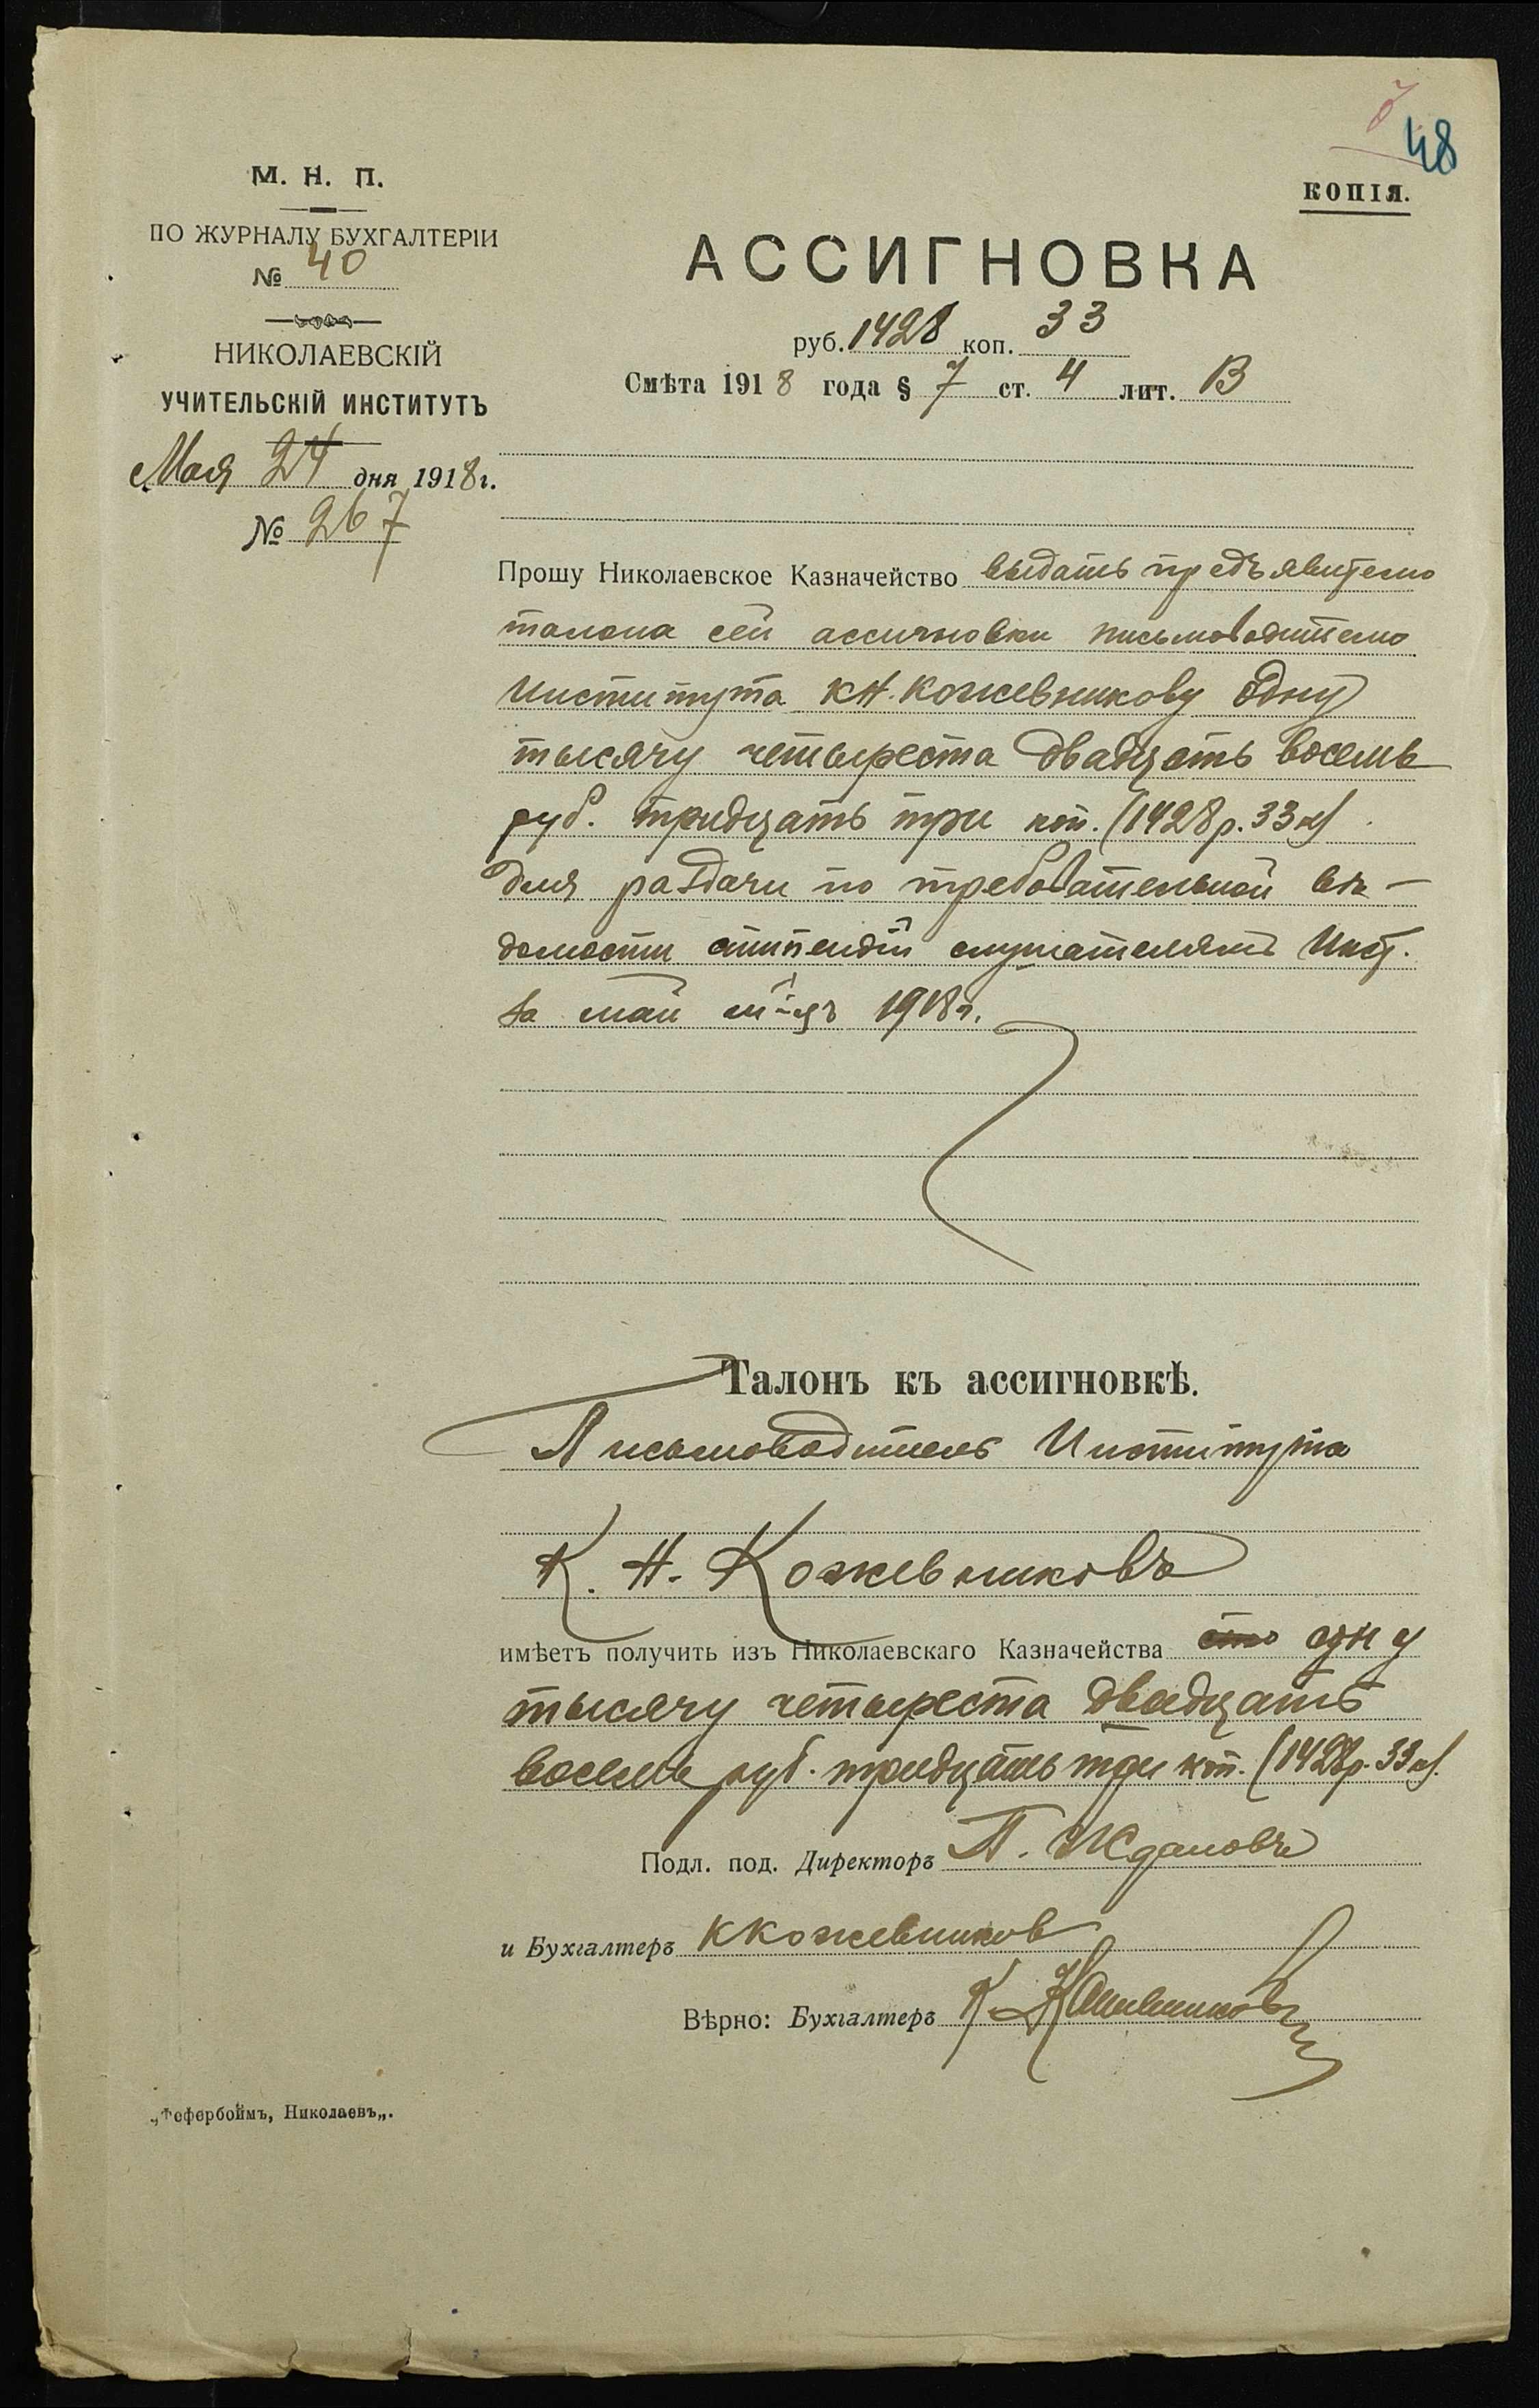 48
КОПІЯ.
М. Н. П.
ПО ЖУРНАЛУ БУХГАЛТЕРІИ
№ 40
НИКОЛАЕВСКІЙ
УЧИТЕЛЬСКІЙ ИНСТИТУТЪ
Мая 24 дня 1918 г.
№ 267
АССИГНОВКА
руб. 1428 коп. 33
Смѣта 1918 года § 7 ст. 4 лит. В
Прошу Николаевское Казначейство выдать предъявителю
талона сей ассигновки письмоводителю
Института КН. Кожевникову одну
тысячу четыреста двадцать восемь
руб. тридцать три коп. (1428 р. 33 к)
для раздачи по требовательной вѣ-
домости стипендій слушателямъ Инст.
за май м-цъ 1918 г.
Талонъ къ ассигновкѣ.
Письмоводитель Института
К. Н. Кожевниковъ
имѣетъ получить изъ Николаевскаго Казначейства сто одну
тысячу четыреста двадцать
восемь руб. тридцать три коп. (1428 р. 33 к).
Подл. под. Директоръ П. Ждановъ
и Бухгалтеръ К Кожевников
Вѣрно: Бухгалтеръ К. Кожевников
„Фефербоймъ, Николаевъ„.